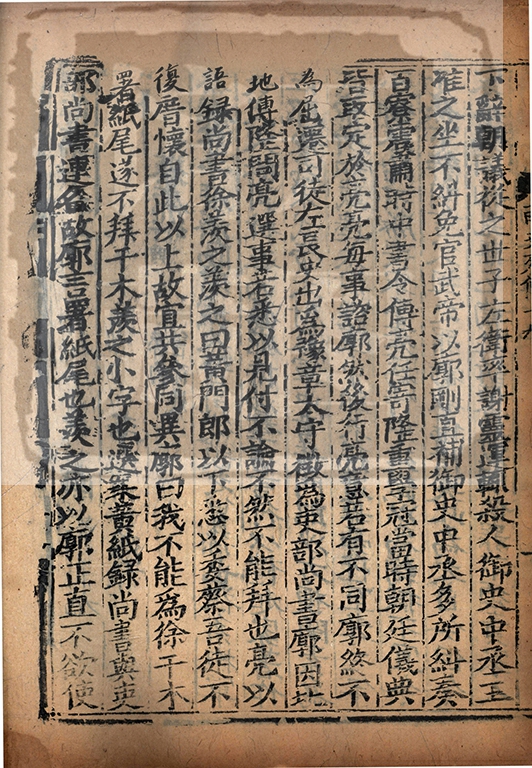 下辭朝議從之世子左衛率謝靈運輒殺人御史中丞王
准之坐不糾免官武帝以廓剛直補御史中丞多所糾奏
百寮震肅時中書令傅亮任寄隆重學冠當時朝廷儀典
皆取定於亮亮每事諮廓然後行亮意若有不同廓終不
為屈遷司徒左長史出為豫章太守徵為吏部尚書廓因北
地傅隆問亮選事若悉以見付不論不然不能拜也亮以
語録尚書徐羨之羨之曰黄門郎以下悉以委蔡吾徒不
復厝懷自此以上故宜共參同異廓曰我不能爲徐干木
署紙尾遂不拜干木羨之小字也選案黄紙録尚書與吏
部尚書連名故廓言署紙尾也羨之亦以廓正直不欲使